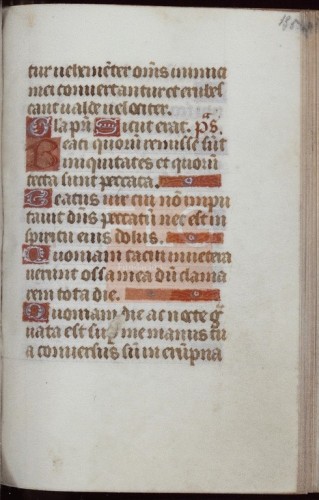 tur vehemēter om̄s inimici
mei convertantur et erubes
cant valde velociter.
Gl̄a pr̄i Sicut erat. p̄s.
Beati quorū remisse sūt
iniquitates et quorū
tecta sunt peccata.
Beatus vir cui nō impu
tavit dn̄s peccatū nec est in
spiritu eius dolus.
Quoniam tacui invetera
verunt ossa mea dū clama
rem tota die.
Quoniam die ac nocte gͣ
vata est sup̄ me manus tu
a conversus sū in erūpna